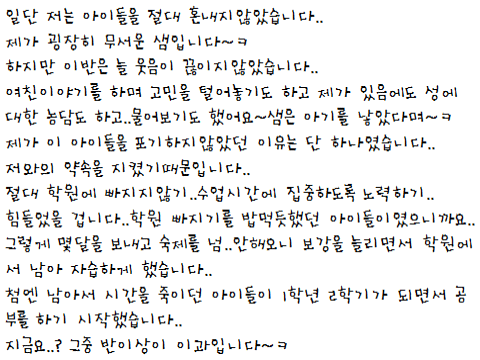 일단 저는 아이들을 절대 혼내지않았습니다..
제가 굉장히 무서운 샘입니다~ㅋ
하지만 이반은 늘 웃음이 끊이지않았습니다..
여친이야기를 하며 고민을 털어놓기도 하고 제가 있음에도 성에
대한 농담도 하고..물어보기도 했어요~샘은 아기를 낳았다며~ㅋ
제가 이 아이들을 포기하지않았던 이유는 단 하나였습니다..
저와의 약속을 지켰기때문입니다..
절대 학원에 빠지지않기..수업시간에 집중하도록 노력하기..
힘들었을 겁니다..학원 빠지기를 밥먹듯했던 아이들이였으니까요..
그렇게 몇달을 보내고 숙제를 넘..안해오니 보강을 늘리면서 학원에
서 남아 자습하게 했습니다..
첨엔 남아서 시간을 죽이던 아이들이 1학년 2학기가 되면서 공
부를 하기 시작했습니다..
지금요..? 그중 반이상이 이과입니다~ㅋ